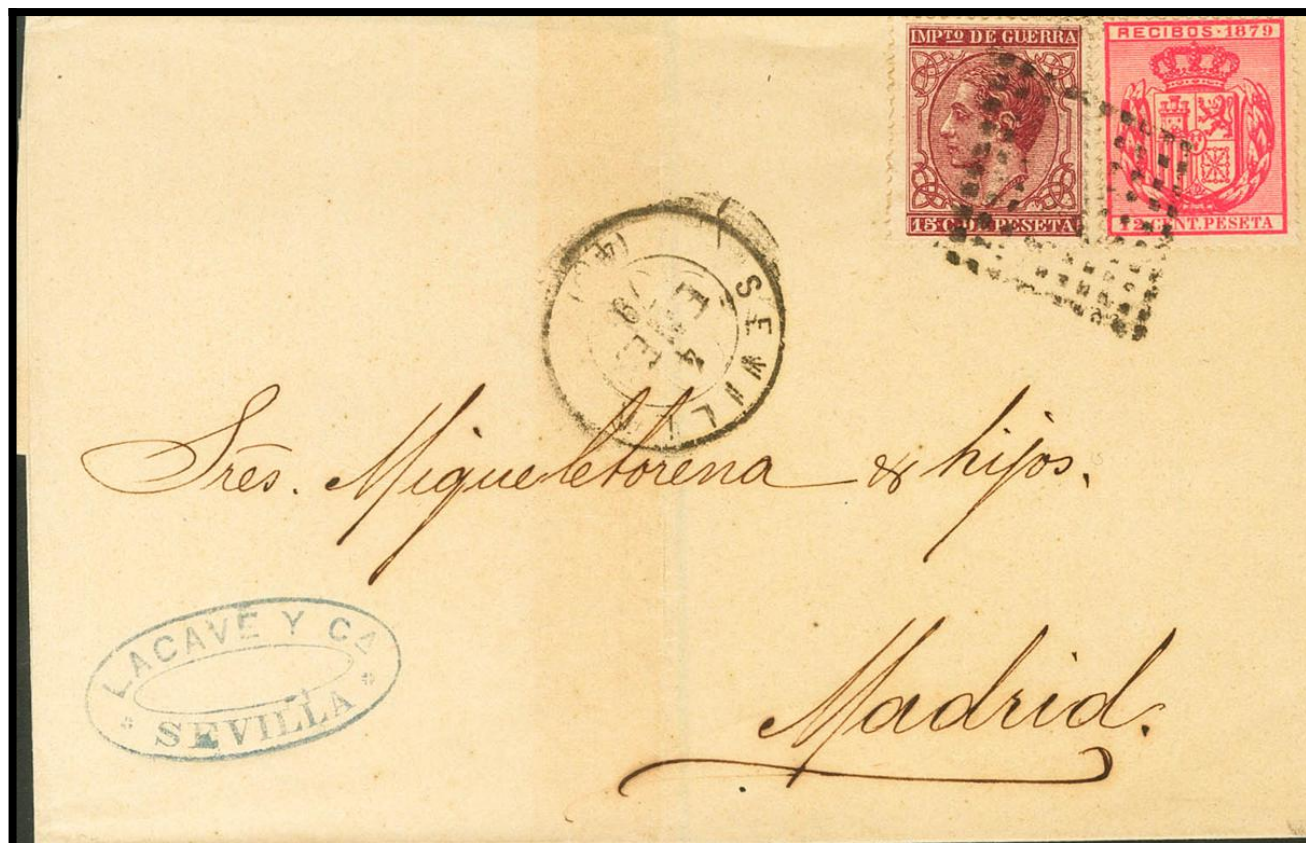 IMPTO DE GUERRA
15 C. DE PESETA
RECIBOS·1879
12 CENT. PESETA
SEVILLA
4
79
Sres. Migueletorena & hijos.
Madrid.
LACAVE Y CA
SEVILLA